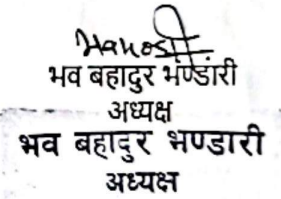 भव बहादुर भंण्डारी
अध्यक्ष
भव बहादुर भण्डारी
अध्यक्ष